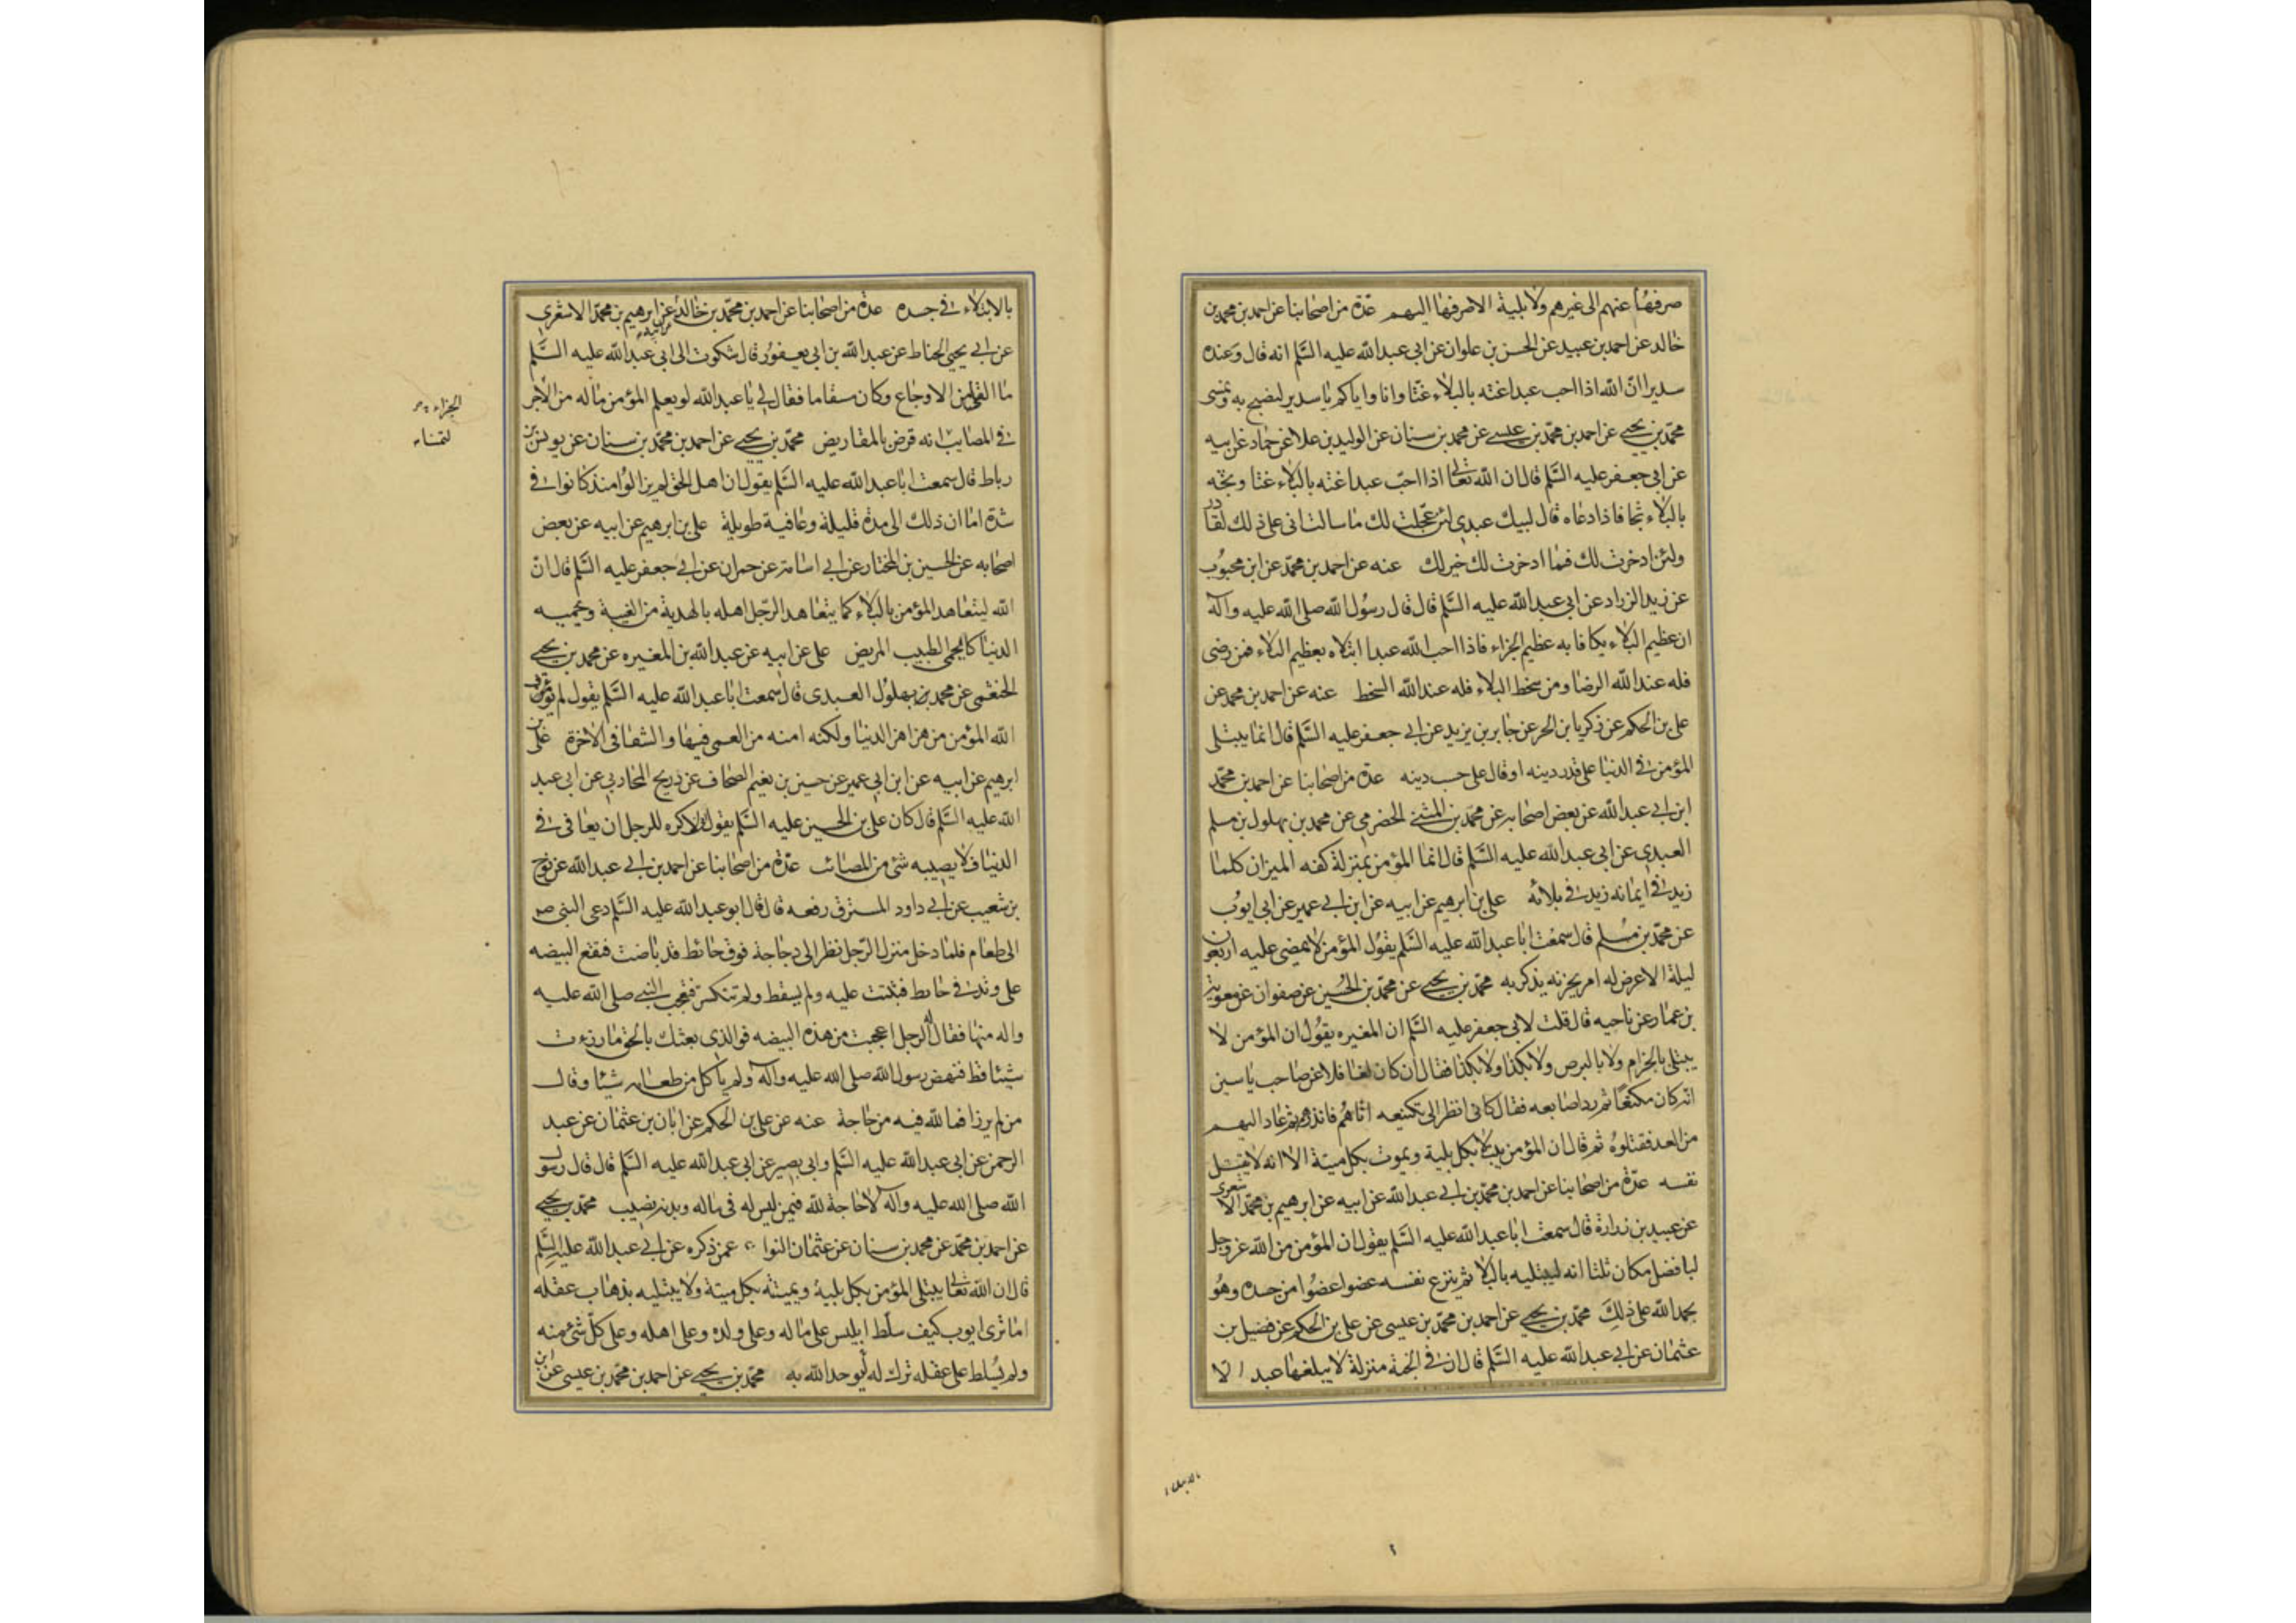 صرفها عنهم الى غيرهم ولا بلية الا صرفها اليهم عدة من اصحابنا عن احمد بن محمد بن
خالد عن احمد بن عبيد عن الحسن بن علوان عن ابى عبد الله عليه السلم انه قال وعنده
سدير ان الله اذا احب عبدا غته بالبلاء غتا وانا واياكم يا سدير لنصبح به ونمسى
محمد بن يحيى عن احمد بن محمد بن عيسى عن محمد بن سنان عن الوليد بن علا عن حماد عن ابيه
عن ابى جعفر عليه السلم قال ان الله تعالى اذا احب عبدا غته بالبلاء غتا وثجه
بالبلاء ثجا فاذا دعاه قال لبيك عبدى لئن عجلت لك ما سالت انى على ذلك لقادر
ولئن ادخرت لك فما ادخرت لك خير لك عنه عن احمد بن محمد عن ابن محبوب
عن زيد الزراد عن ابى عبد الله عليه السلم قال قال رسول الله صلى الله عليه وآله
ان عظيم البلاء يكافا به عظيم الجزاء فاذا احب الله عبدا ابتلاه بعظيم البلاء فمن رضى
فله عند الله الرضا ومن سخط البلاء فله عند الله السخط عنه عن احمد بن محمد عن
على بن الحكم عن زكريا بن الحر عن جابر بن يزيد عن ابى جعفر عليه السلم قال انما يبتلى
المؤمن فى الدنيا على قدر دينه او قال على حسب دينه عدة من اصحابنا عن احمد بن محمد
ابن ابى عبد الله عن بعض اصحابه عن محمد بن المثنى الحضرمى عن محمد بن بهلول بن مسلم
العبدى عن ابى عبد الله عليه السلم قال انما المؤمن بمنزلة كفه الميزان كلما
زيد فى ايمانه زيد فى بلائه على بن ابرهيم عن ابيه عن ابن ابى عمير عن ابى ايوب
عن محمد بن مسلم قال سمعت ابا عبد الله عليه السلم يقول المؤمن لا يمضى عليه اربعون
ليلة الا عرض له امر يحزنه يذكر به محمد بن يحيى عن محمد بن الحسين عن صفوان عن معوية
بن عمار عن ناحيه قال قلت لابى جعفر عليه السلم ان المغيره يقول ان المؤمن لا
يبتلى بالجزام ولا بالبرص ولا بكذا ولا بكذا فقال ان كان لغافلا عن صاحب ياسين
انه كان مكنعا ثم رد اصابعه فقال كانى انظر الى تكنيعه اتاهم فانذرهم ثم عاد اليهم
من الغد فقتلوه ثم قال ان المؤمن يبتلى بكل بلية ويموت بكل ميتة الا انه لا يقتل
نفسه عدة من اصحابنا عن احمد بن محمد بن ابى عبد الله عن ابيه عن ابرهيم بن محمد الاشعرى
عن عبيد بن زرارة قال سمعت ابا عبد الله عليه السلم يقول ان المؤمن من الله عز وجل
لبافضل مكان ثلثا انه ليبتليه بالبلا ثم ينزع نفسه عضوا عضوا من جسده وهو
يحمد الله على ذلك محمد بن يحيى عن احمد بن محمد بن عيسى عن على بن الحكم عن فضيل بن
عثمان عن ابى عبد الله عليه السلم قال ان فى الجنة منزلة لا يبلغها عبد الا
بالابتلاء
بالابتلاء فى جسده عدة من اصحابنا عن احمد بن محمد بن خالد عن ابرهيم بن محمد الاشعرى
عن ابى يحيى الحناط عن عبد الله بن ابى يعفور قال شكوت الى ابى عبد الله عليه السلم
ما القى من الاوجاع وكان مسقاما فقال لى يا عبد الله لو يعلم المؤمن ما له من الاجر
فى المصايب انه قرض بالمقاريض محمد بن يحيى عن احمد بن محمد بن سنان عن يونس بن
رباط قال سمعت ابا عبد الله عليه السلم يقول ان اهل الحق لم يزالوا منذ كانوا فى
شدة اما ان ذلك الى مدة قليلة وعافية طويلة على بن ابرهيم عن ابيه عن بعض
اصحابه عن الحسين بن المختار عن ابى اسامة عن حمران عن ابى جعفر عليه السلم قال ان
الله ليتعاهد المؤمن بالبلاء كما يتعاهد الرجل اهله بالهدية من الغيبة ويحميه
الدنيا كما يحمى الطبيب المريض على عن ابيه عن عبد الله بن المغيره عن محمد بن يحيى
الخثعمى عن محمد بن بهلول العبدى قال سمعت ابا عبد الله عليه السلم يقول لم يؤمن
الله المؤمن من هزاهز الدنيا ولكنه امنه من العمى فيها والشقا فى الاخرة على بن
ابرهيم عن ابيه عن ابن ابى عمير عن حسين بن نعيم الصحاف عن ذريح المحاربى عن ابى عبد
الله عليه السلم قال كان على بن الحسين عليه السلم يقول انى لاكره للرجل ان يعافى فى
الدنيا فلا يصيبه شئ من المصائب عدة من اصحابنا عن احمد بن ابى عبد الله عن نوح
بن شعيب عن ابى داود المسترق رفعه قال قال ابو عبد الله عليه السلم دعى النبى ص
الى طعام فلما دخل منزل الرجل نظر الى دجاجة فوق حائط قد باضت فتقع البيضه
على وتد فى حايط فثبتت عليه ولم يسقط ولم تنكسر فتعجب النبى صلى الله عليه
واله منها فقال له الرجل اعجبت من هذه البيضه فوالذى بعثك بالحق ما رزءت
شيئا قط فنهض رسول الله صلى الله عليه وآله ولم ياكل من طعامه شيئا وقال
من لم يرزا فما لله فيه من حاجة عنه عن على بن الحكم عن ابان بن عثمان عن عبد
الرحمن عن ابى عبد الله عليه السلم وابى بصير عن ابى عبد الله عليه السلم قال قال رسول
الله صلى الله عليه وآله لا حاجة لله فيمن ليس له فى ماله وبدنه نصيب محمد بن يحيى
عن احمد بن محمد عن محمد بن سنان عن عثمان النوا عمن ذكره عن ابى عبد الله عليه السلم
قال ان الله تعالى يبتلى المؤمن بكل بلية ويميته بكل ميتة ولا يبتليه بذهاب عقله
اما ترى ايوب كيف سلط ابليس على ماله وعلى ولده وعلى اهله وعلى كل شئ منه
ولم يسلط على عقله ترك له ليوحد الله به محمد بن يحيى عن احمد بن محمد بن عيسى عن ابن